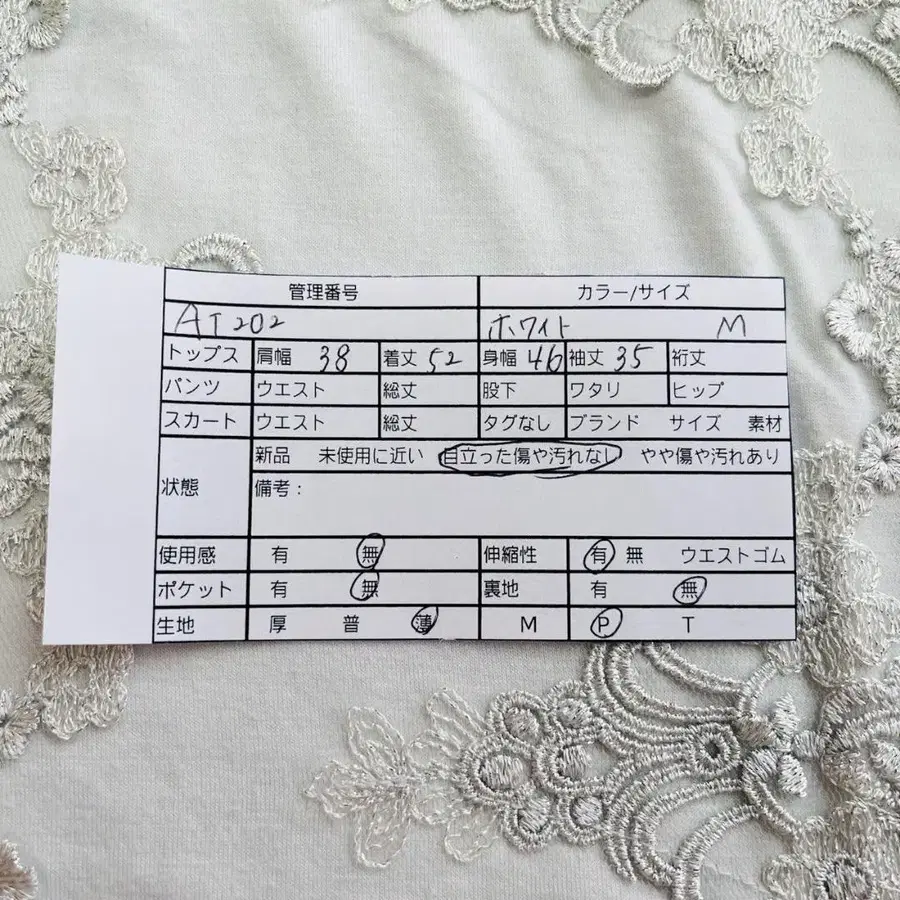 管理番号 カラー/サイズ
AT202 ホワイト M
トップス 肩幅 38 着丈 52 身幅 46 袖丈 35 裄丈
パンツ ウエスト 総丈 股下 ワタリ ヒップ
スカート ウエスト 総丈 タグなし ブランド サイズ 素材
新品 未使用に近い 目立った傷や汚れなし やや傷や汚れあり
状態 備考：
使用感 有 無 伸縮性 有 無 ウエストゴム
ポケット 有 無 裏地 有 無
生地 厚 普 薄 M P T